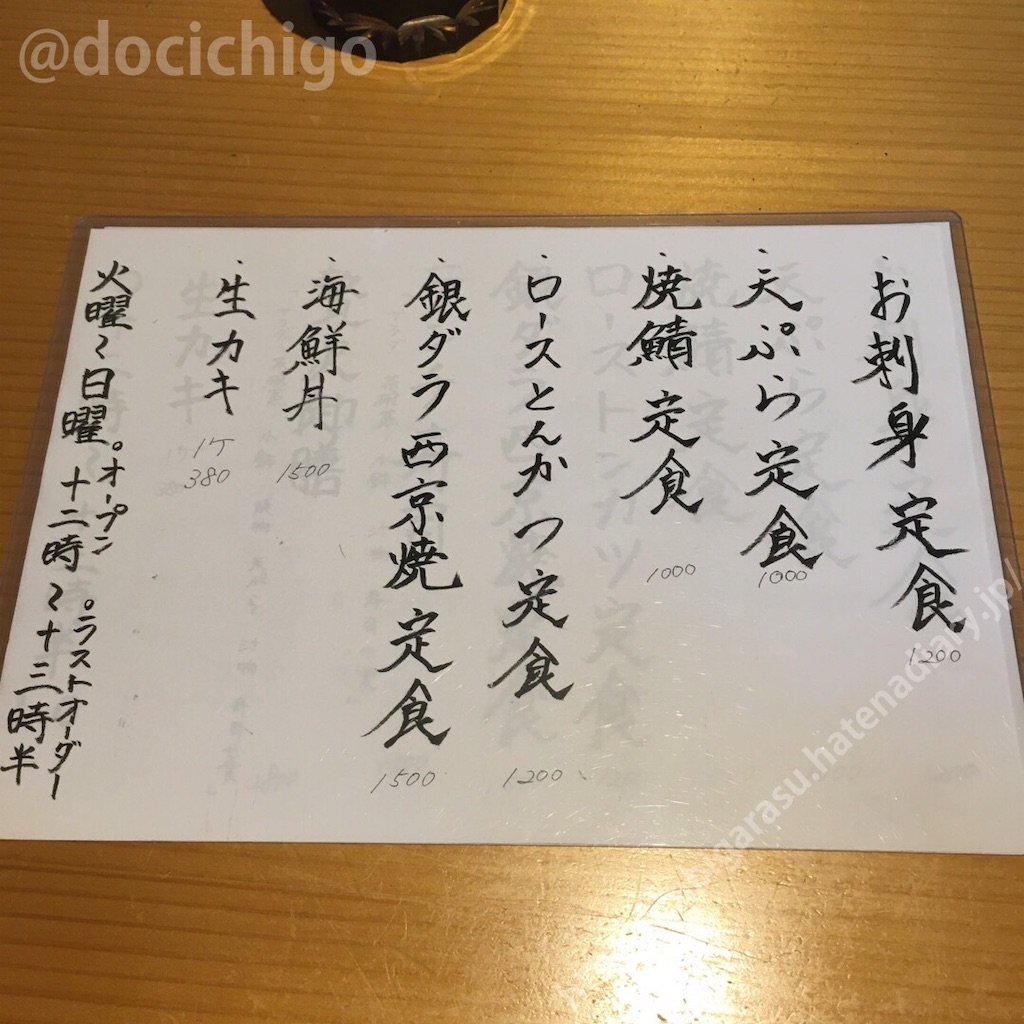 @docichigo
・お刺身定食
1200
・天ぷら定食
1000
・焼鯖定食
1000
・ロースとんかつ定食
1200
・銀ダラ西京焼定食
1500
・海鮮丼
1500
・生カキ
1ケ
380
火曜〜日曜。オープン 。ラストオーダー
十二時〜十三時半
garasu.hatenadiary.jp/